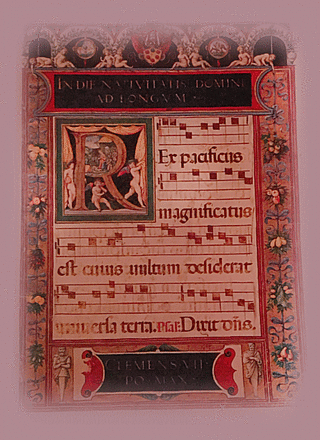 IN DIE NATIVITATIS DOMINI
AD LONGVM
REx pacificus
magnificatus
est cuius uultum desiderat
uniuersa terra. Psal. Dixit dñs.
CLEMENS VII
PO. MAX.